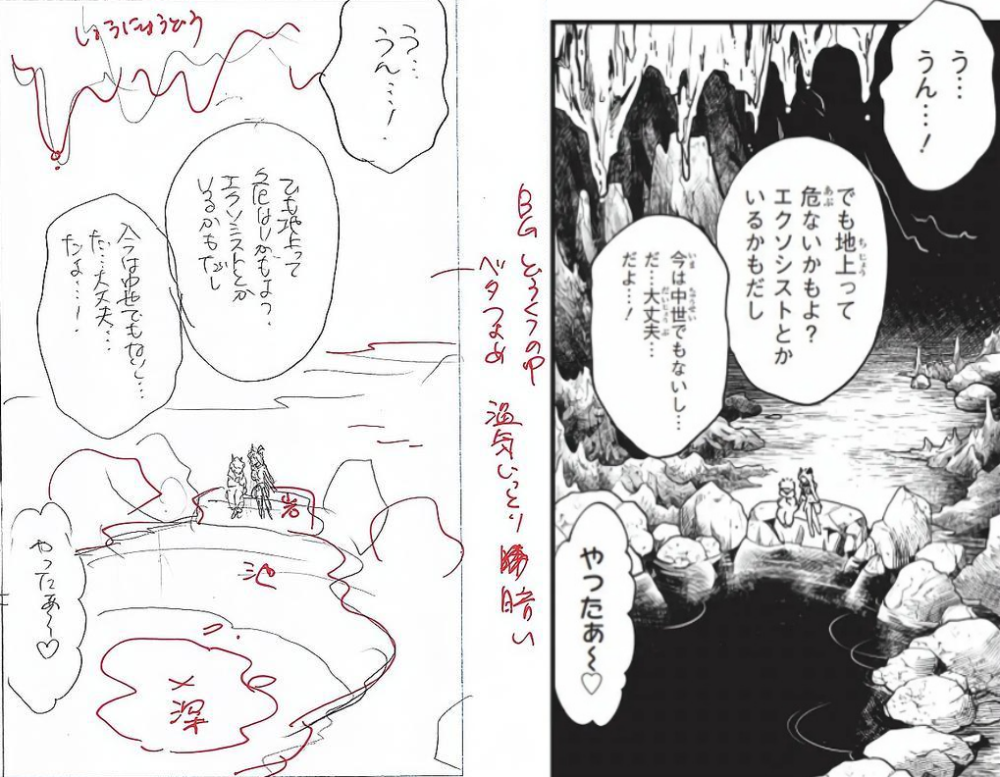 しょうにゅうどう
う…
うん…!
でも地上って
危ないかもよ?
エクソシストとか
いるかもだし
今は中世でもないし…
だ…大丈夫…
だよ…!
やったぁ〜♡
岩
池
BG どうくつの中
ベタつよめ
湿気じっとり
暗い
う…
うん…!
でも地上って
危ないかもよ?
エクソシストとか
いるかもだし
あぶ
ちじょう
今は中世でもないし…
だ…大丈夫…
だよ…!
いま
ちゅうせい
だいじょうぶ
やったぁ〜♡